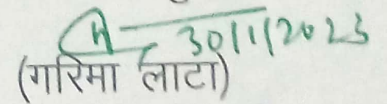 30/1/2023
(गरिमा लाटा)